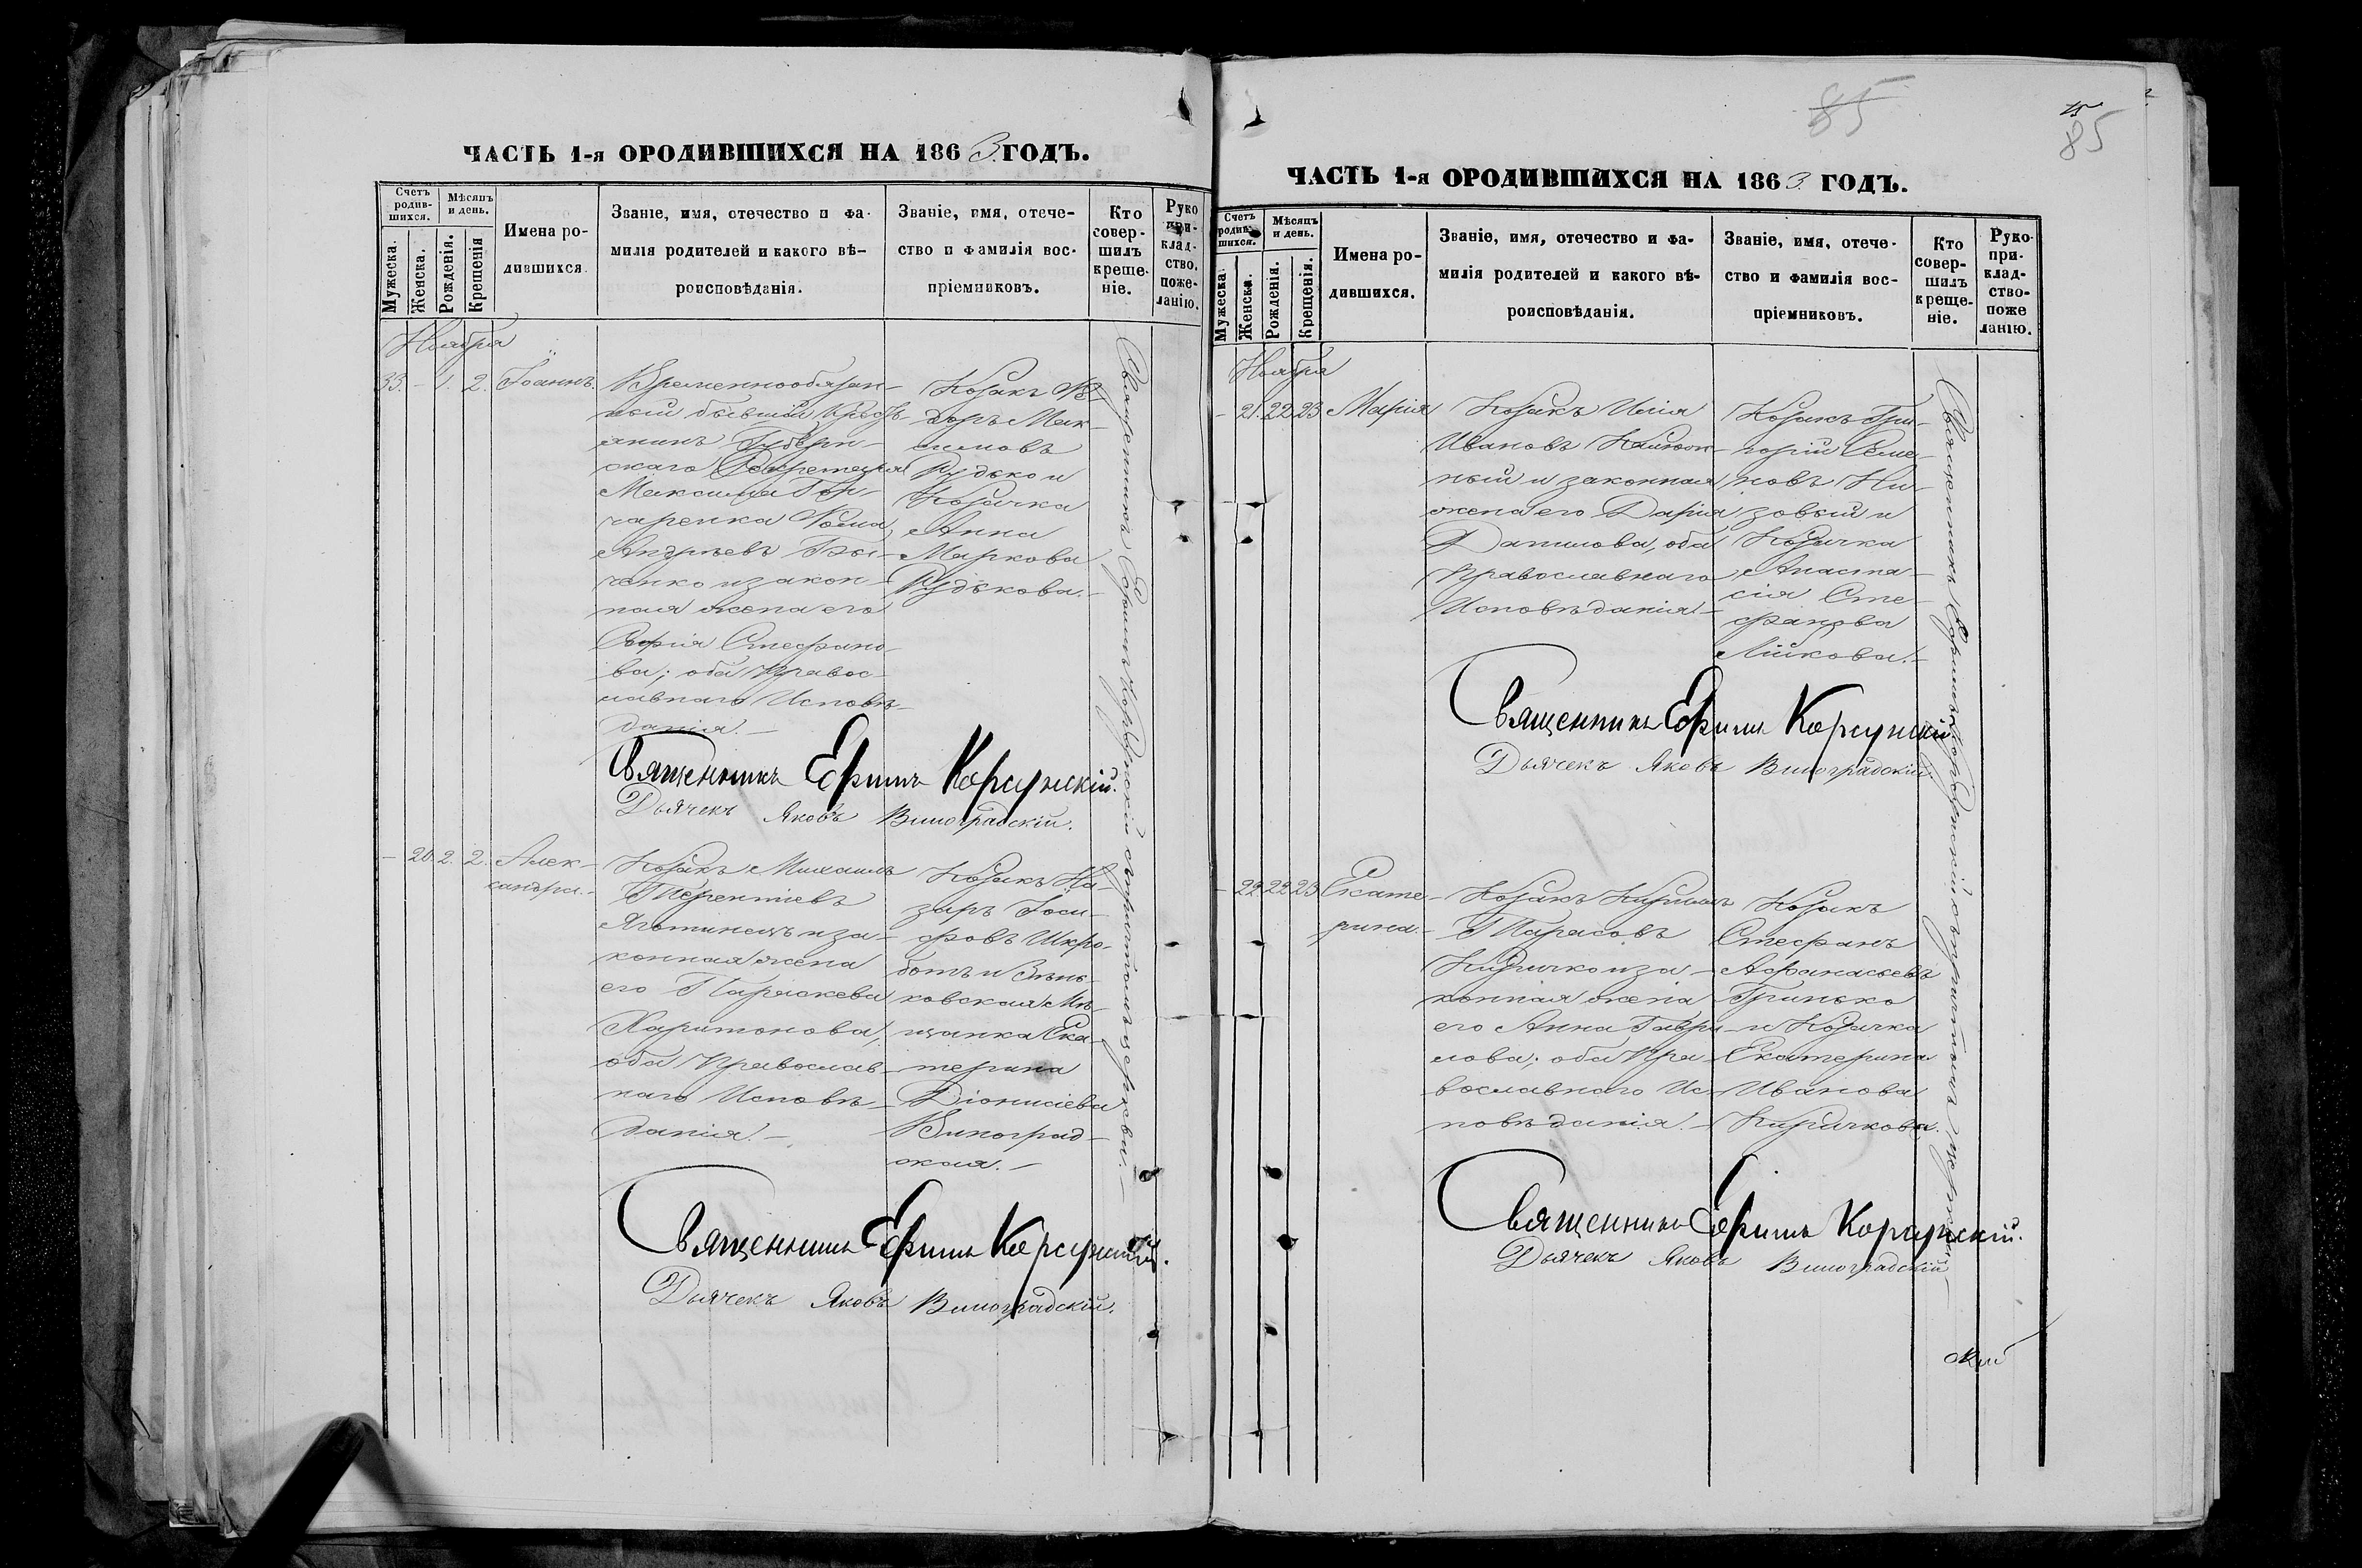 ЧАСТЬ 1-я ОРОДИВШИХСЯ НА 1863 ГОДЪ.
Счетъ родившихся.
Мѣсяцъ и день.
Мужеска.
Женска.
Рожденія.
Крещенія
Имена родившихся.
Званіе, имя, отечество и фа-
милія родителей и какого вѣ-
роисповѣданія.
Званіе, имя, отече-
ство и фамилія вос-
пріемниковъ.
Кто совер-
шилъ
креще-
ніе.
Руко
при-
клад-
ство.
поже-
ланію.
Ноября
33. – 1. 2. Іоаннъ.
Временнообязан-
ный бывшій Крестья-
янинъ Губерн-
скаго Секретаря
Максима Гон-
чаренка Фома
Андреевъ
и закон-
ная жена его
Софія Стефано-
ва; оба Правос-
лавнаго Исповѣ-
данія. –
Козакъ Ѳе-
доръ Мак-
симовъ
Рудько и
Козачка
Анна
Маркова
Рудькова. –
Священникъ Ефимъ Корсунскій съ причтомъ церкви. –
Священникъ Ефимъ Корсунскій.
Дьячекъ Яковъ Виноградскій.
– 20. 2. 2. Алек-
сандра. –
Козакъ Михаилъ
Терентіевъ
Яготинецъ и за-
конная жена
его Параскева
Харитонова,
оба Православ-
наго Исповѣ-
данія. –
Козакъ На-
заръ Іоси-
фовъ Шкро-
ботъ и Зѣнь-
ковская Мѣ-
щанка Ека-
терина
Діонисіева
Виноград-
ская. –
Священникъ Ефимъ Корсунскій.
Дьячекъ Яковъ Виноградскій.
85
85
ЧАСТЬ 1-я ОРОДИВШИХСЯ НА 1863 ГОДЪ.
Счетъ родившихся.
Мѣсяцъ и день.
Мужеска.
Женска.
Рожденія.
Крещенія.
Имена ро-
дившихся.
Званіе, имя, отечество и фа-
милія родителей и какого вѣ-
роисповѣданія.
Званіе, имя, отече-
ство и фамилія вос-
пріемниковъ.
Кто
совер-
шилъ
креще-
ніе.
Руко-
при-
клад-
ство-
поже
ланію.
Ноября
– 21. 22. 23 Марія
Козакъ Илія
Ивановъ
и законная
жена его Дарія
Данилова, оба
Православнаго
Исповѣданія. –
Козакъ Гри-
горій Семе-
новъ Ни-
зовый и
Козачка
Анаста-
сія Сте-
фанова
Лійкова. –
Священникъ Ефимъ Корсунскій съ причтомъ церкви. –
Священникъ Ефимъ Корсунскій
Дьячекъ Яковъ Виноградскій.
– 22 22 23 Екате-
рина. –
Козакъ Кириллъ
Тарасовъ
Киричко и за-
конная жена
его Анна Гаври-
лова; оба Пра-
вославнаго Ис-
повѣданія. –
Козакъ
Стефанъ
Афанасьевъ
Гринько
и Козачка
Екатерина
Иванова
Киричкова.
Священникъ Ефимъ Корсунскій.
Дьячекъ Яковъ Виноградскій